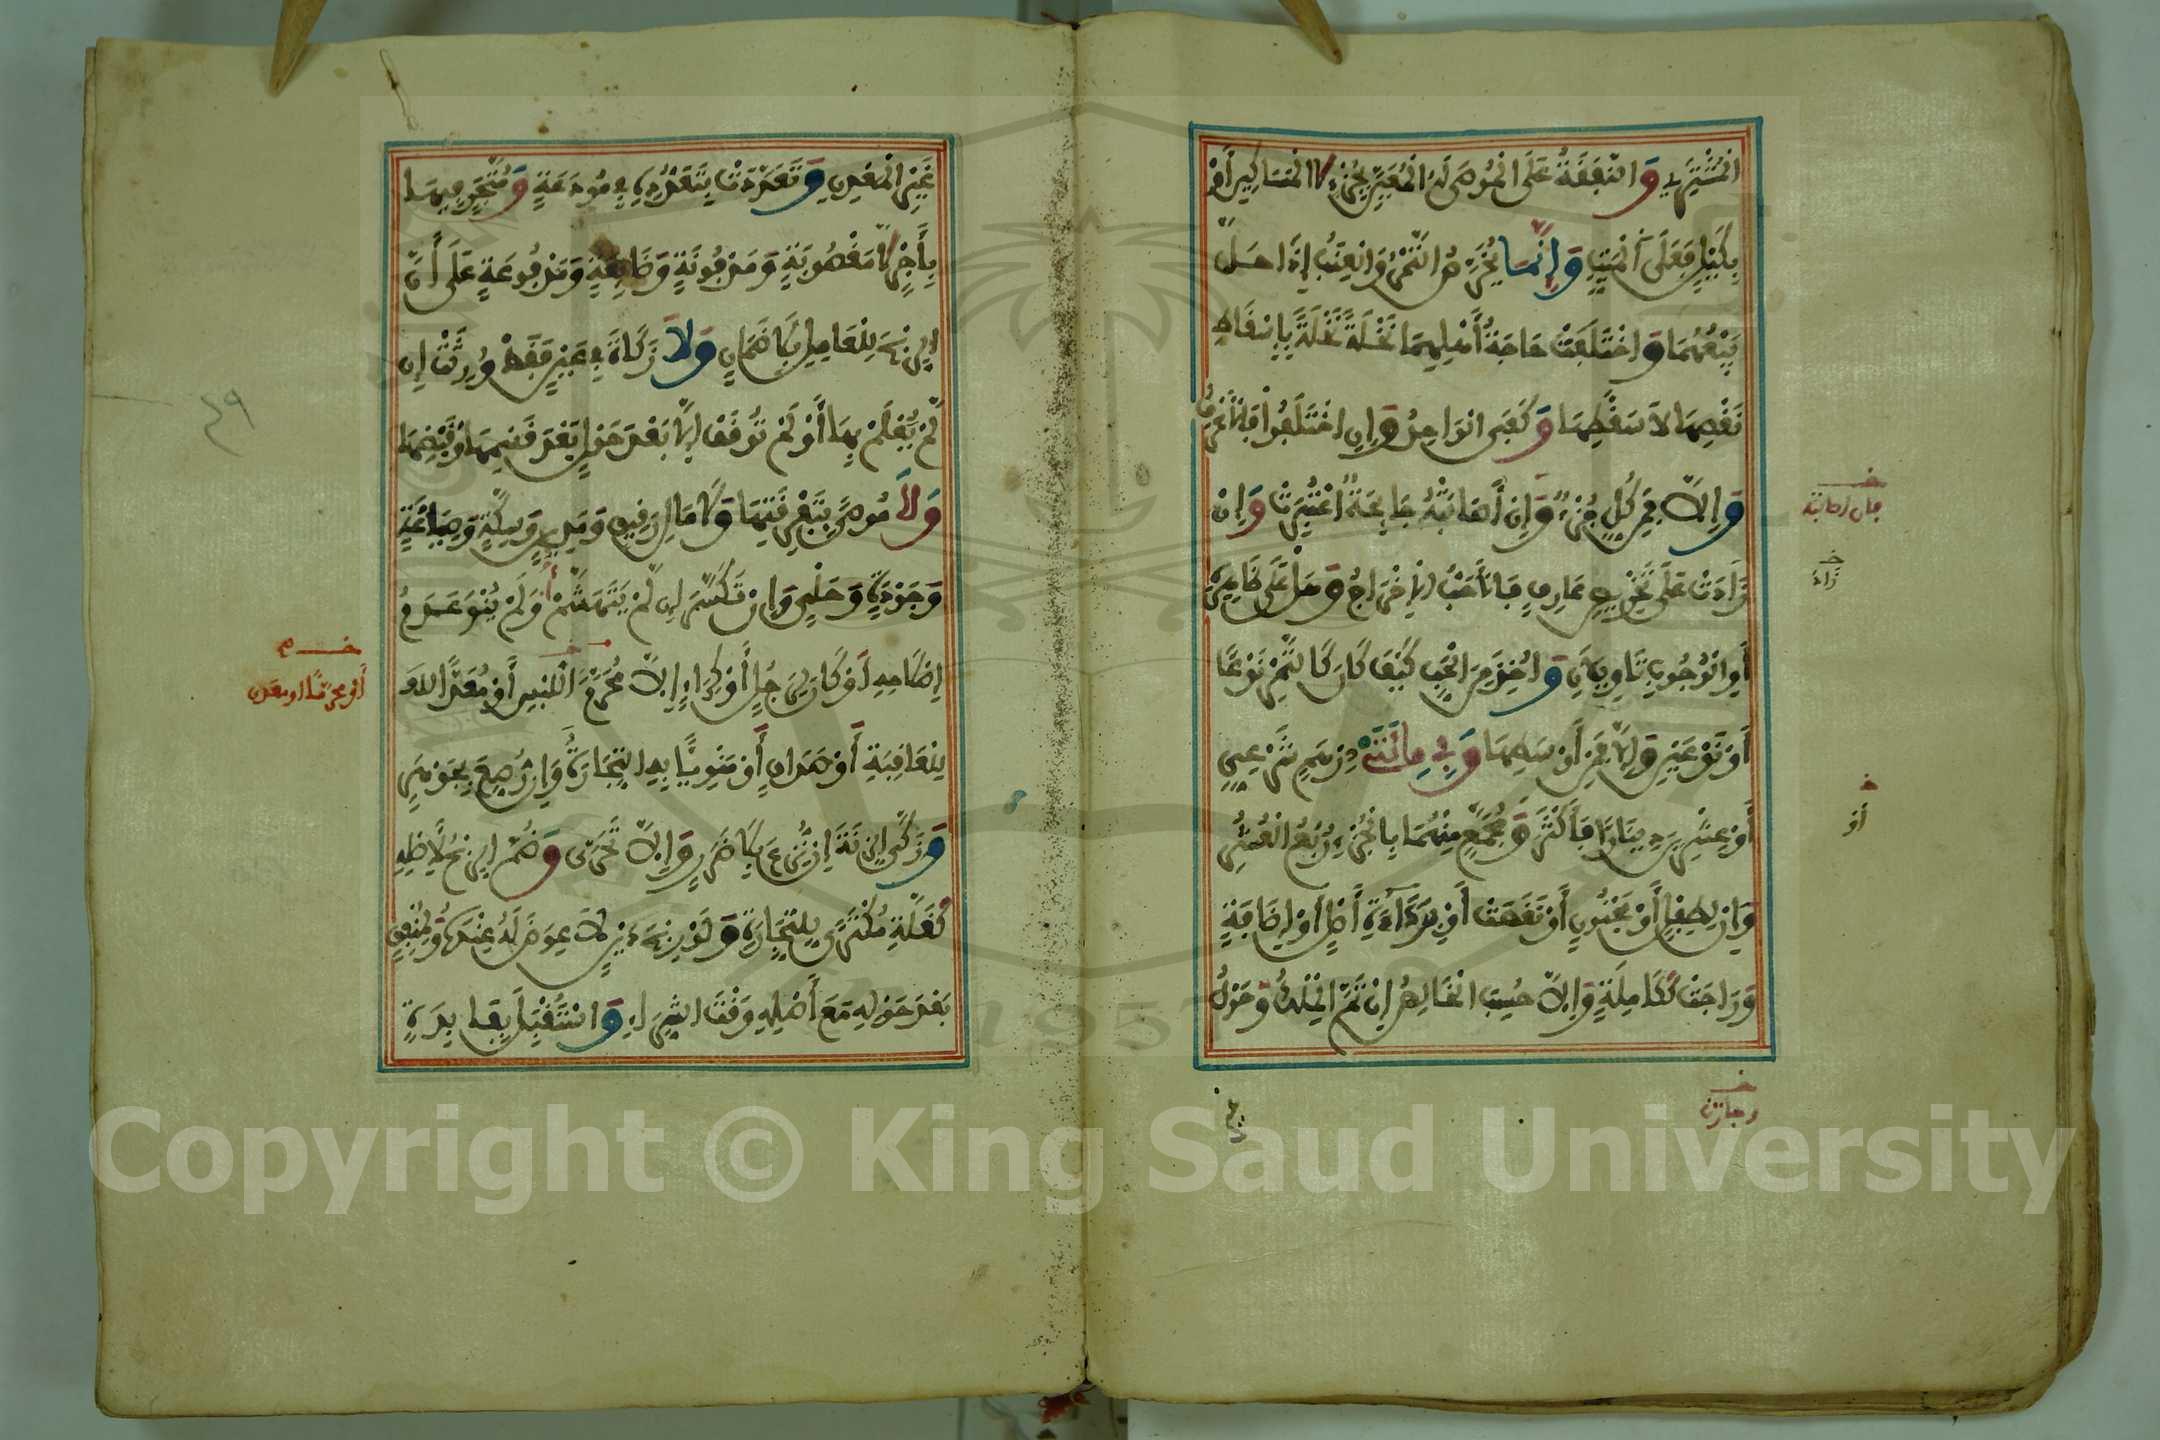 المشتري والنفقة على الموصى له المعين بجزء لا المساكين أو
بكيل فعلى الميت وإنما يخرص التمر والعنب إذا حل
بيعهما واختلفت حاجة أهلهما نخلة نخلة بإسقاط
نقصها لا سقطها وكفى الواحد وإن اختلفوا فالأعرف
وإلا فمن كل جزء وإن أصابته جائحة اعتبرت وإن
زادت على تخريص عارف فالأحب الإخراج وهل على ظاهره
أو الوجوب تأويلان وأخذ من الحب كيف كان كالتمر نوعا
أو نوعين وإلا فمن أوسطها وفي مائتي درهم شرعي
أو عشرين دينارا فأكثر ومجمع منهما بالجزء ربع العشر
وإن لطفل أو مجنون أو نقصت أو برداءة أصل أو إضافة
وراجت ككاملة وإلا حسب الخالص إن تم الملك وحول
زاد
أو
غير المعدن وتعددت بتعدده في مودعة ومتجر فيها
بأجر لا مغصوبة ومدفونة وضائعة ومدفوعة على أن
الربح للعامل بلا ضمان ولا زكاة في عين فقط ورثت إن
لم يعلم بها أو لم توقف إلا بعد حول بعد قسمها أو قبضها
ولا موصى بتفرقتها ولا مال رقيق ومدين وسكة وصياغة
وجودة وحلي وإن تكسر إن لم يتهشم أو لم ينو عدم
إصلاحه أو كان لرجل أو كراء إلا محرم اللبس أو معدا
للعاقبة أو صداق أو منويا به التجارة وإن رصع بجوهر
وزكى الزنة إن نزع بلا ضرر وإلا تحرى وضم الربح لأصله
كغلة مكترى للتجارة ولو ربح دين لا عوض له عنده ولمنفق
بعد حوله مع أصله وقت الشراء واستقبل بفائدة
٤٩
Copyright © King Saud University
1957